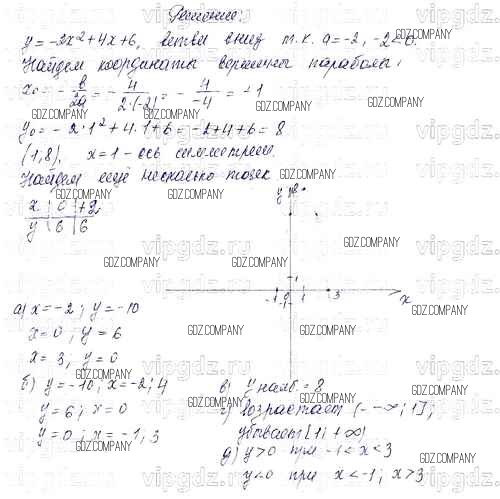 Решение:
y = -2x² + 4x + 6, ветви вниз т.к. a = -2, -2 < 0.
Найдем координаты вершины параболы:
x₀ = - в/2a = - 4/2·(-2) = - 4/-4 = +1
y₀ = - 2·1² + 4·1 + 6 = -2 + 4 + 6 = 8
(1, 8), x = 1 - ось симметрии.
Найдем ещё несколько точек
x | 0 | +2
y | 6 | 6
y 8
1
-1 0 1 3 x
а) x = -2; y = -10
x = 0; y = 6
x = 3, y = 0
б) y = -10; x = -2; 4
y = 6; x = 0
y = 0; x = -1, 3
в) y наиб. = 8
г) Возрастает (-∞; 1];
убывает [1; +∞)
д) y > 0 при -1 < x < 3
y < 0 при x < -1; x > 3
GDZ.COMPANY
vipgdz.ru